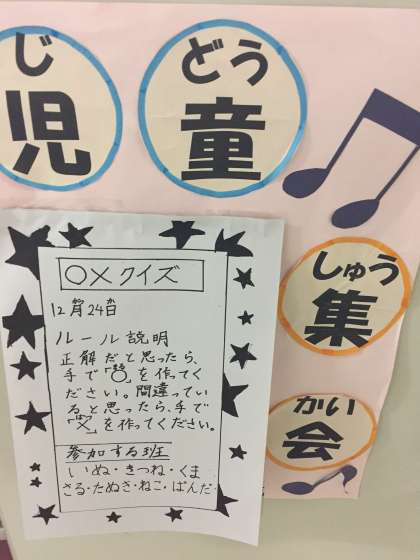 じ どう
児 童
しゅう
集
かい
会
○×クイズ
12月24日
ルール説明
正解だと思ったら、
手で「○」を作ってく
ださい。間違ってい
ると思ったら、手で
「×」を作ってください。
参加する班
いぬ・きつね・くま
さる・たぬき・ねこ・ぱんだ